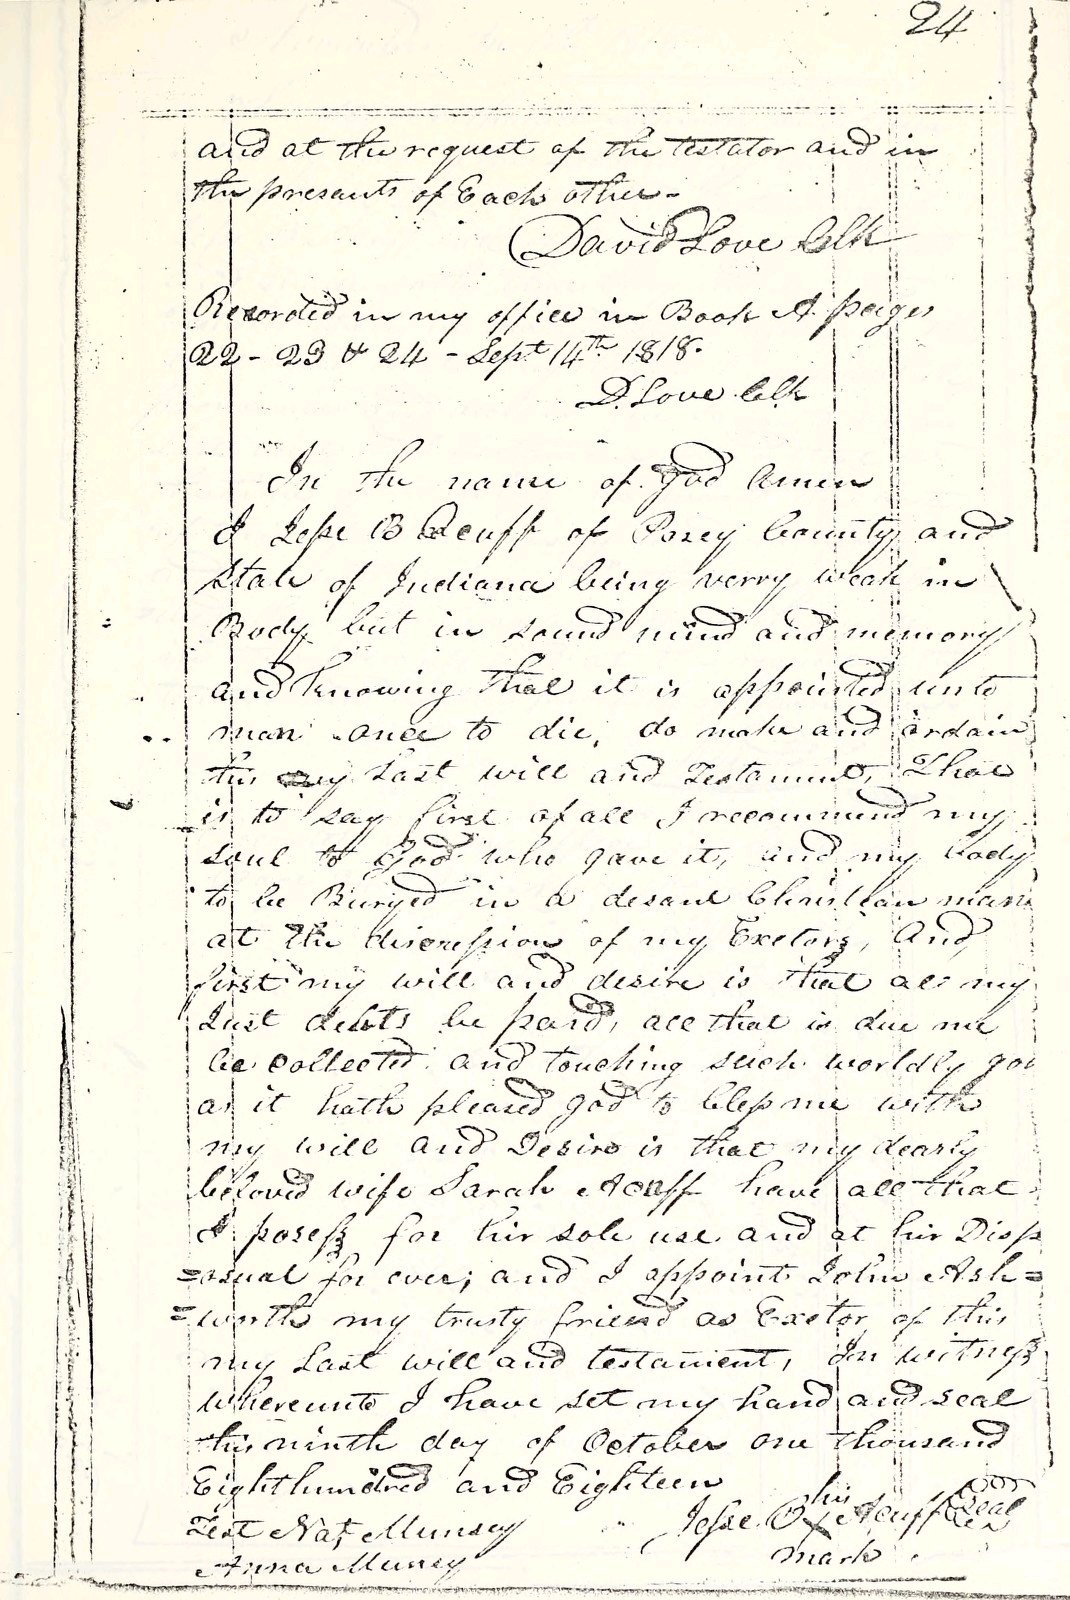 24
and at the request of the testator and in
the presants of Each other -
David Love Clk
Recorded in my office in Book A pages
22 - 23 & 24 - Sept 14th 1818.
D. Love Clk
In the name of god Amen
I Jesse B Acuff of Posey County and
State of Indiana being verry weak in
Body but in sound mind and memory
and knowing that it is appointed unto
man once to die, do make and ordain
this my Last will and Testament, That
is to say first of all I recommend my
soul to God who gave it, and my body
to be Buryed in a desant Christian mann
at the discression of my Exetors, And
first my will and desire is that all my
Just debts be paid, all that is due me
be collected and touching such worldly goo
as it hath pleased god to bless me with
my will and Desire is that my dearly
beloved wife Sarah Acuff have all that
I posess for hir sole use and at hir Disp
=osual for ever; and I appoint John Ash=
=worth my trusty friend as Exetor of this
my Last will and testament, In witness
whereunto I have set my hand and seal
this ninth day of October one thousand
Eighthundred and Eighteen
Test Nat Munsey Jesse B his x mark Acuff Seal
Anna Munsey